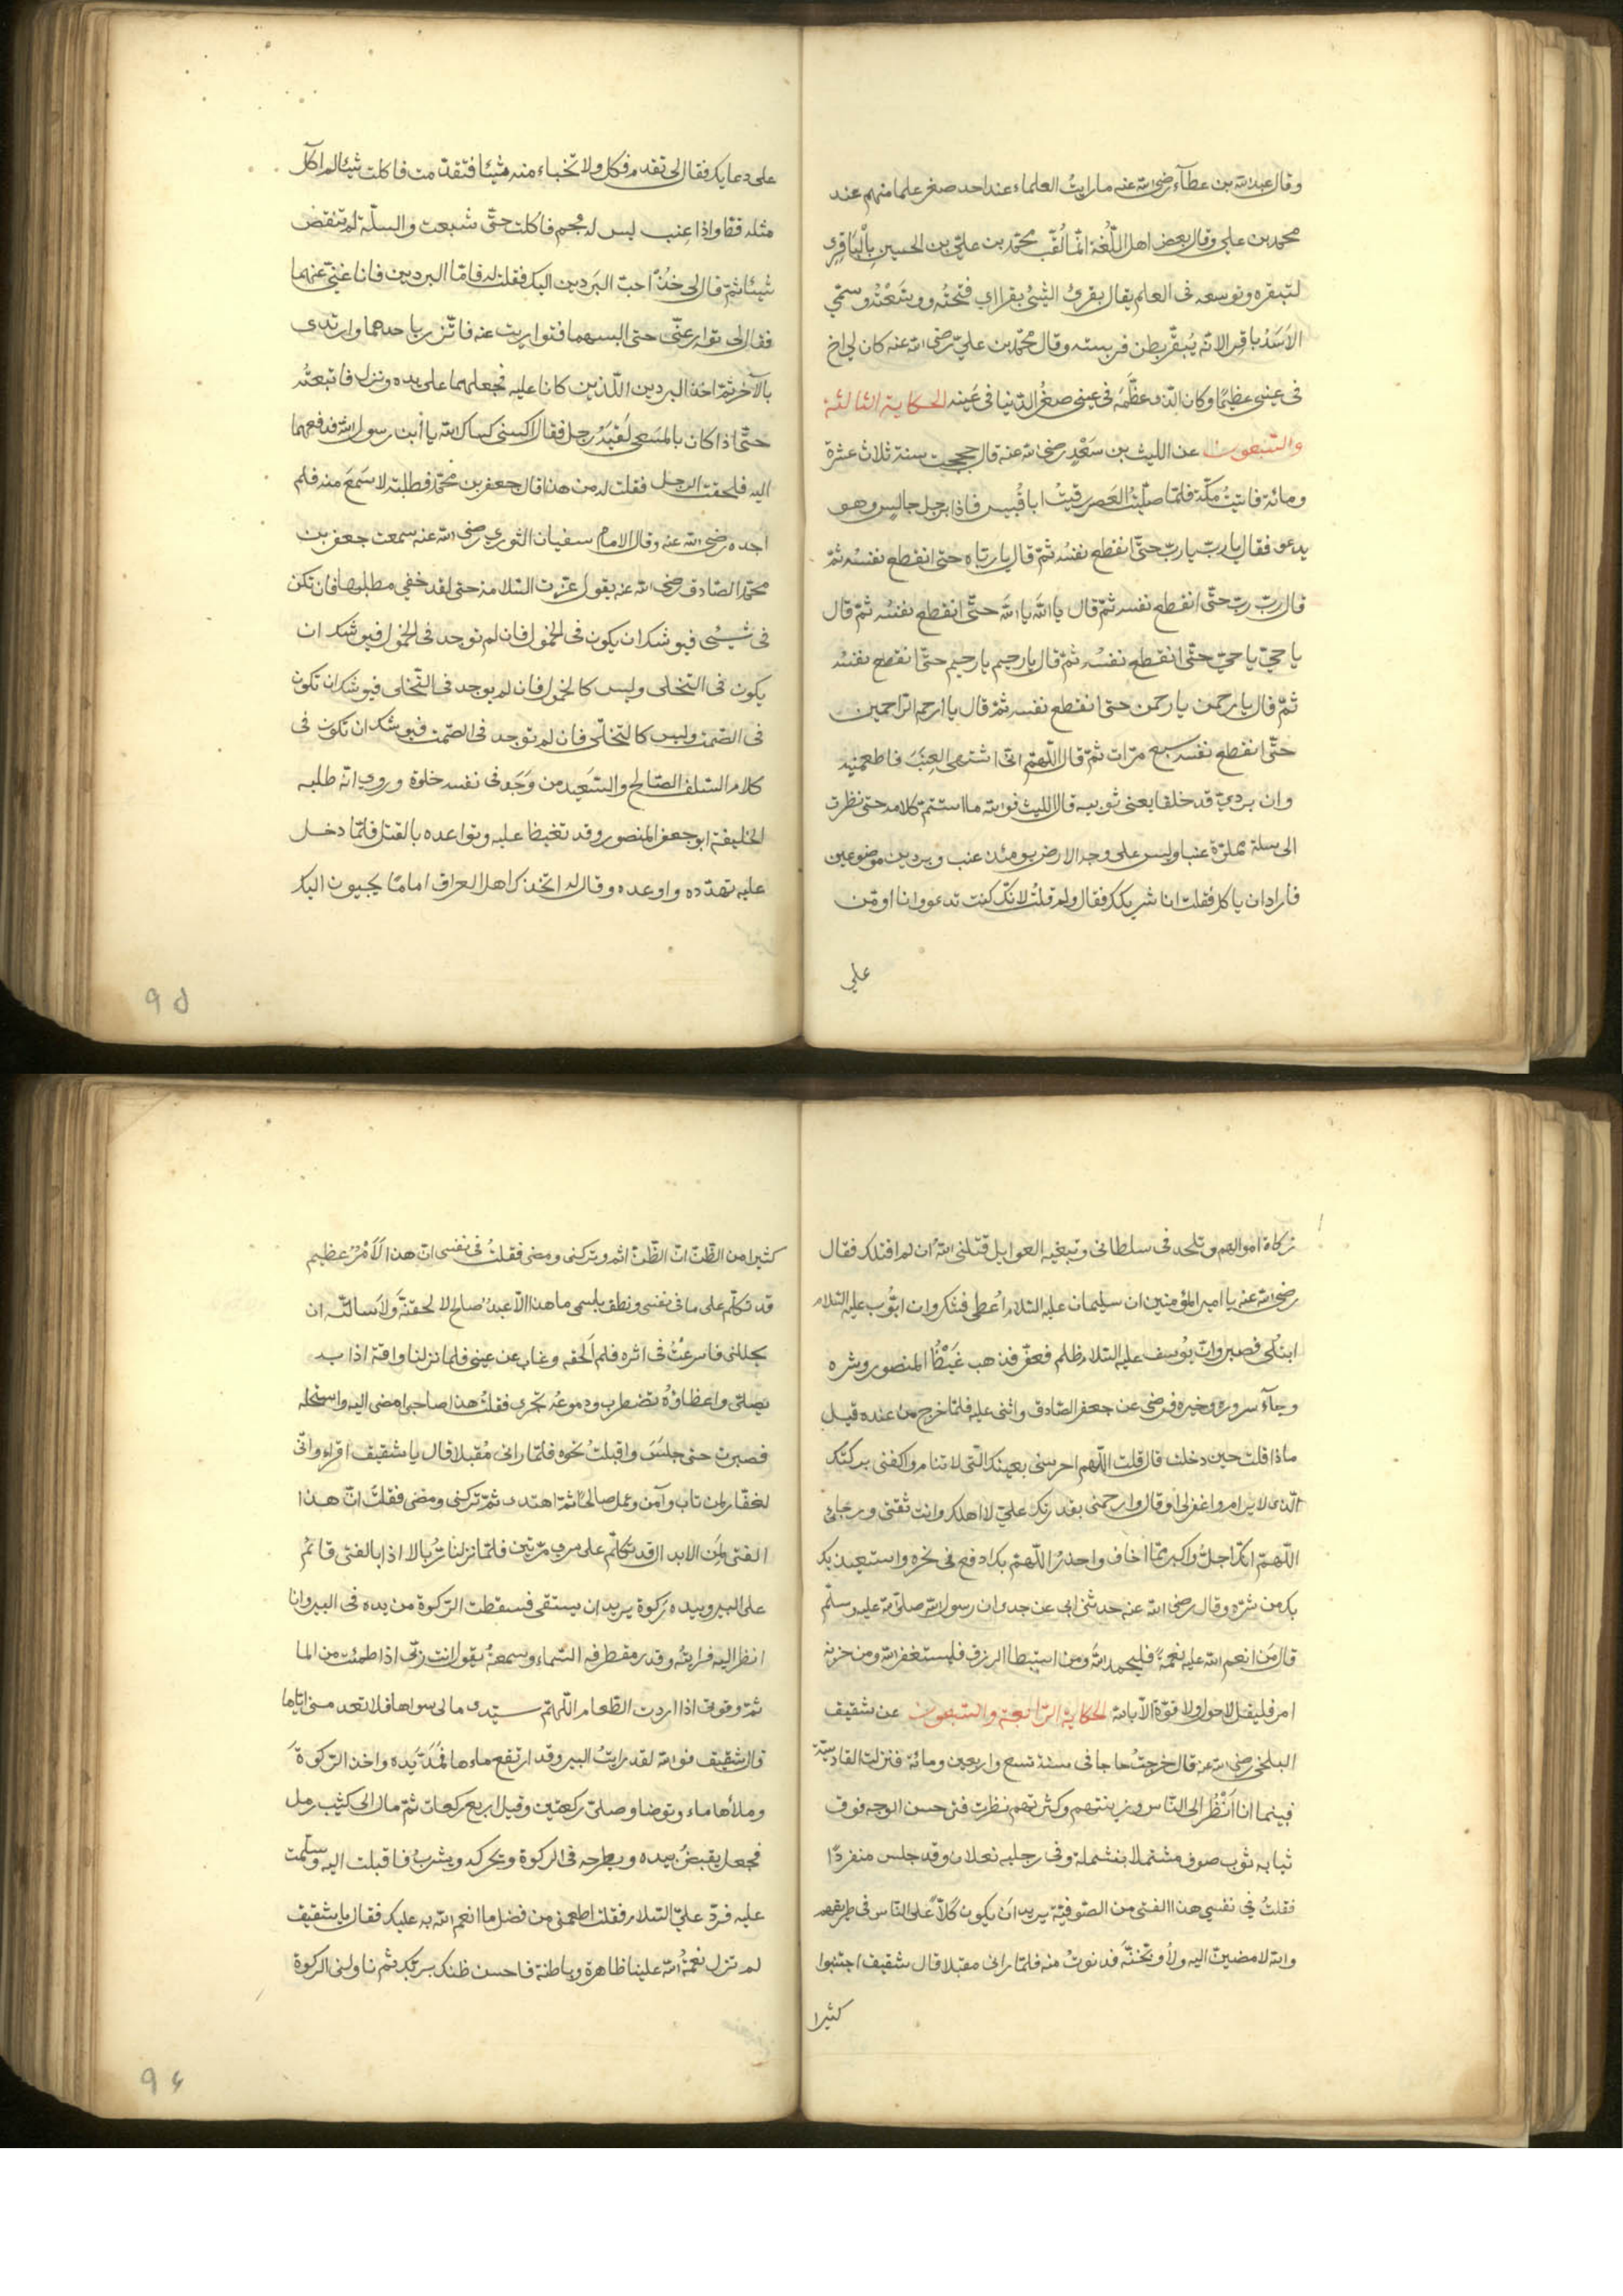 وقال عبد الله بن عطآء رضى الله عنه ما رايت العلماء عند احد صغر علما منهم عند
محمد بن علي وقال بعض اهل اللّغة انّما لُقّب محمّد بن عليّ بن الحسين بالباقر
لتبقره وتوسعه فى العلم يقال بقرتُ الشئ بقرا اي فتحتُه ووسّعتُه وسمّي
الاسَدُ باقر الانّه يُبقّر بطن فريسته وقال محمّد بن عليّ رضى الله عنه كان لي اخ
فى عينى عظيمًا وكان الذى عظّمَه فى عينى صغرُ الدّنيا فى عَينه الحكاية الثالثة
والسّبعون عن الليث بن سَعْدٍ رضى الله عنه قال حججت سنة ثلاث عشرة
ومائة فاتيتُ مكّة فلمّا صلّيتُ العَصر رقيتُ ابا قُبيس فاذا برجل جالس وهو
يدعو فقال يا ربّ يا ربّ حتّى انقطع نفسُه ثمّ قال يا ربّاه حتى انقطع نفسُه ثمّ
قال ربّ ربّ حتّى انقطع نفسه ثمّ قال يا الله يا الله حتّى انقطع نفسُه ثمّ قال
يا حيّ يا حيّ حتّى انقطع نفسُه ثمّ قال يا رحيم يا رحيم حتّى انقطع نفسُه
ثمّ قال يا رحمن يا رحمن حتى انقطع نفسه ثمّ قال يا ارحم الراحمين
حتّى انقطع نفسه سبع مرّات ثمّ قال اللّهمّ انّى اشتهى العِنَبَ فاطعمنيه
وان بُرديّ قد خلقا يعنى ثوبيه قال الليث فوالله ما استتم كلامه حتى نظرت
الى سلة مملوّة عنبا وليس على وجه الارض يومئذ عنب وبردين موضوعين
فأراد ان ياكل فقلت انا شريكك فقال ولم قلتُ لانّك كنت تدعو وانا اومّن
علي
على دعايك فقال لى تقدم فكل ولا تخباء منه شيئا فتقدمت فاكلت شيئا لم اكل
مثله قط واذا عنب ليس له عجم فاكلت حتّى شبعت والسلّة لم تنقض
شيئا ثمّ قال لى خُذْ احبّ البَردين اليك فقلت له فامّا البردين فانا غنيّ عنهما
فقال لى توار عنّى حتى البسهما فتواريت عنه فاتّزر باحدهما وارتدى
بالآخر ثمّ اخذ البردين اللّذين كانا عليه فجعلهما على يده ونزل فاتبعتُه
حتّى اذا كان بالمسعى لَقيَهُ رجل فقال اكسنى كساك الله يا ابن رسول الله فدفعهما
اليه فلحقت الرجل فقلت له من هذا قال جعفر بن محمّد فطلبته لاسَمعَ منه فلم
اجده رضى الله عنه وقال الامام سفيان الثوري رضى الله عنه سمعت جعفر بن
محمّد الصّادق رضى الله عنه يقول عزّت السّلامة حتى لقد خفي مطلبها فان تكن
فى شيئى فيوشك ان يكون فى الخمول فان لم توجد فى الخمول فيوشك ان
يكون فى التخلى وليس كالخمول فان لم يوجد فى التّخلى فيوشك ان تكون
فى الصّمت وليس كالتخلّى فان لم توجد فى الصّمت فيوشك ان تكون فى
كلام السّلف الصّالح والسّعيد من وَجَد فى نفسه خلوة وروي انّه طلبه
الخليفة ابو جعفر المنصور وقد تغيّظا عليه وتواعده بالقتل فلمّا دخل
عليه تهدّده واوعده وقال له اتخذك اهل العراق امامًا يجيبون اليك
٩٥
زكاة اموالهم وتلحد فى سلطانى وتبغيه الغوايل قتلنى الله ان لم اقتلك فقال
رضى الله عنه يا امير المؤمنين ان سليمان عليه السّلام اُعطى فشكر وان ايّوب عليه السّلام
ابتلى فصبر وانّ يوُسف عليه السّلام ظلم فعفر فذهب غَيْظُ المنصور وشره
وجآء سروره وخيره فرضى عن جعفر الصّادق واثنى عليه فلمّا خرج من عنده قيل
ماذا قلت حين دخلت قال قلت اللّهم احرسنى بعينك الّتى لا تنام واكفنى بركنك
الّذى لا يرام واغفر لى او قال وارحمنى بقدرتك عليّ لا اهلك وانت ثقتى ورجائى
اللّهمّ انّك اجلّ واكبر ممّا اخاف واحذرُ اللّهمّ بك ادفع فى نحره واستعيذ بك
بك من شرّه وقال رضى الله عنه حدثنى ابى عن جدى ان رسول الله صلى الله عليه وسلّم
قال مَن انعم الله عليه نعمةً فليحمد الله ومن استبطا الرزق فليستغفر الله ومن حزبه
امر فليقل لا حول ولا قوّة الاّ بالله الحكاية الرّابعة والسّبعون عن شقيق
البلخى رضى الله عنه قال خرجتُ حاجا فى سنة تسع واربعين ومائة فنزلت القادسيّة
فبينما انا اَنظُر الى النّاس وزينتهم وكثرتهم نظرت فتى حسن الوجه فوق
ثيابه ثوب صوف مشتملا بشملة وفى رجليه نعلان وقد جلس منفردًا
فقلتُ فى نفسى هذا الفتى من الصّوفيّة يريد ان يكون كَلاًّ على النّاس فى طريقهم
والله لامضينّ اليه ولأوبّخنّه فدنوتُ منه فلمّا رانى مقبلا قال شقيق اجتنبوا
كثيرا
كثيرا من الظّنّ انّ بعض الظّنّ اثم وتركنى ومضى فقلتُ فى نفسى انّ هذا الاَمْرُ عظيم
قد تكلّم على ما فى نفسى ونطق باسمى ما هذا الاّ عبدٌ صالح لا لحقنّهَ ولاَسالنّه ان
يجللنى فاسرعْتُ فى اثره فلم اَلحقه وغاب عن عينى فلما نزلنا واقة اذا به
يصلّى واعظاؤُه تضطرب ودموعُه تجرى فقلتُ هذا صاحبى امضى اليه واستحله
فصبرت حتى جلسَ واقبلتُ نحوه فلمّا رانى مُقبلا قال يا شقيق اقراء وانّى
لغفّار لمن تاب وآمن وعمل صالحًا ثمّ اهتدى ثمّ تركنى ومضى فقلتُ انّ هذا
الفتى لمن الابدال قد تكلّم على سري مرّتين فلمّا نزلنا زُبالا اذا بالفتى قائمٌ
على البير وبيده رَكوة يريد ان يستقى فسقطت الرّكوة من يده فى البير وانا
انظر اليه فرايتُه وقد رمق طرفه السّماء وسمعتهُ يقول انت ربّى اذا ظمئت من الما
ثمّ وقوتى اذا اردت الطّعام اللّهمّ سيّدى ما لى سواها فلا تعدمنى ايّاها
قال شقيق فوالله لقد رايتُ البير وقد ارتفع ماءها فمَدّ يَده واخذ الرّكوةَ
وملأها ماء وتوضا وصلّى ركعتين وقيل اربع ركعات ثمّ مال الى كثيب رمل
فجعل يقبضُ بيده ويطرحه فى الركوة ويحركه ويشربُ فاقبلت اليه وسلّمت
عليه فردّ عليّ السّلام فقلت اطعمنى من فضل ما انعم الله به عليك فقال يا شقيق
لم تزل نعمةُ الله علينا ظاهرة وباطنة فاحسن ظنك بربّك ثم ناولنى الركوة
٩٤